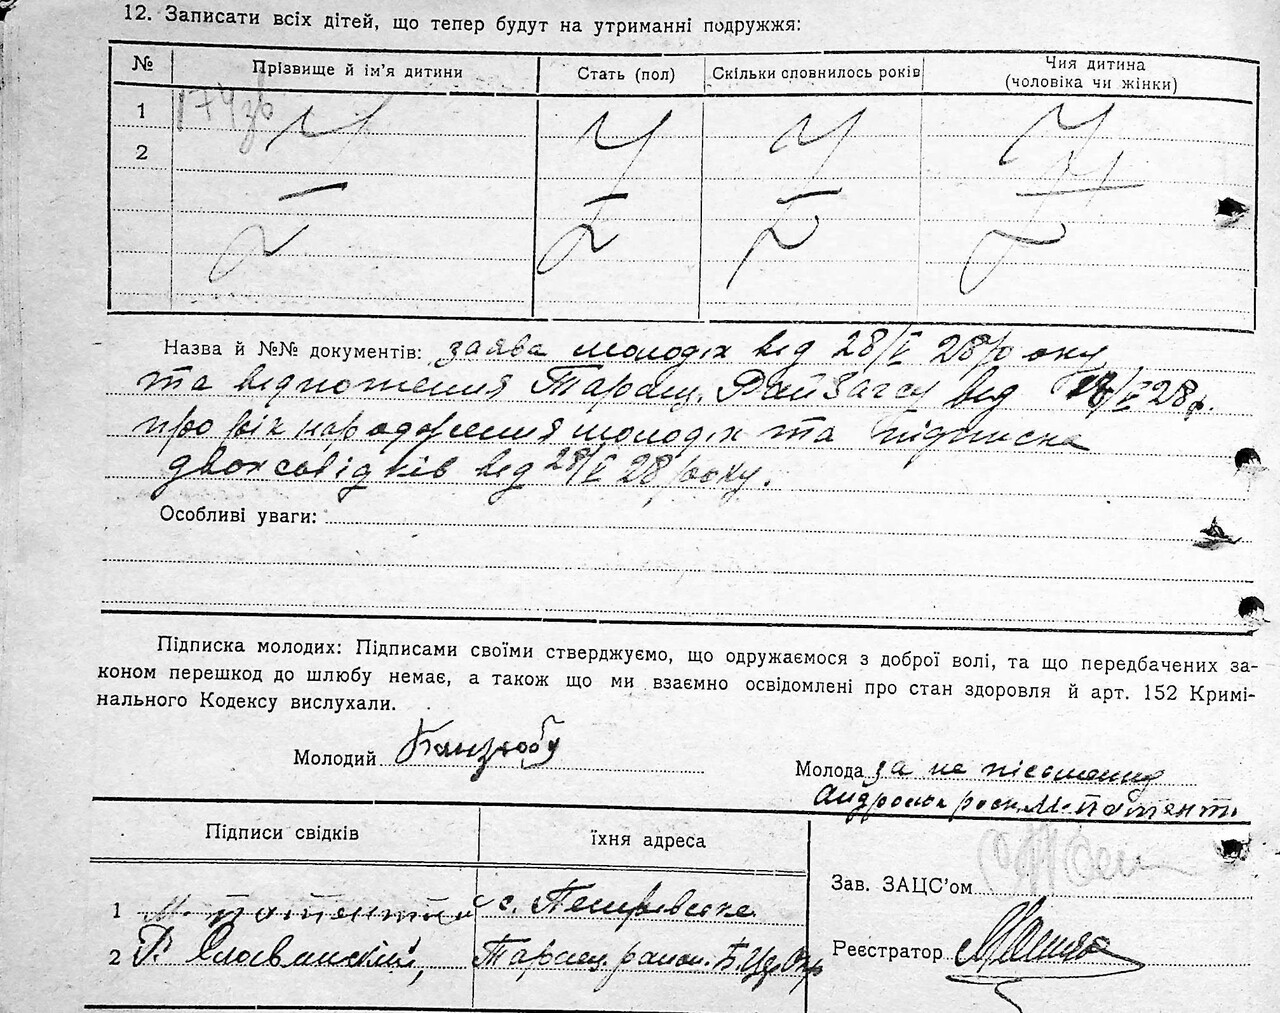 12. Записати всіх дітей, що тепер будут на утриманні подружжя:
№ Прізвище й ім'я дитини Стать (пол) Скільки сповнилось років Чия дитина
(чоловіка чи жінки)
1
2
Назва й №№ документів: заява молодіх від 28/V 28 року
та відношения Таращ. від 28/V 28 р.
про рік народження молодіх та підписка
двох свідків від 28/V 28 року.
Особливі уваги:
Підписка молодих: Підписами своїми стверджуємо, що одружаємося з доброї волі, та що передбачених за-
коном перешкод до шлюбу немає, а також що ми взаємно освідомлені про стан здоровля й арт. 152 Кримі-
нального Кодексу вислухали.
Молодий
Молода за не письменну
Підписи свідків їхня адреса
Зав. ЗАЦС'ом
1 с.
2 Таращ. район. Б.Це. Окр
Реєстратор